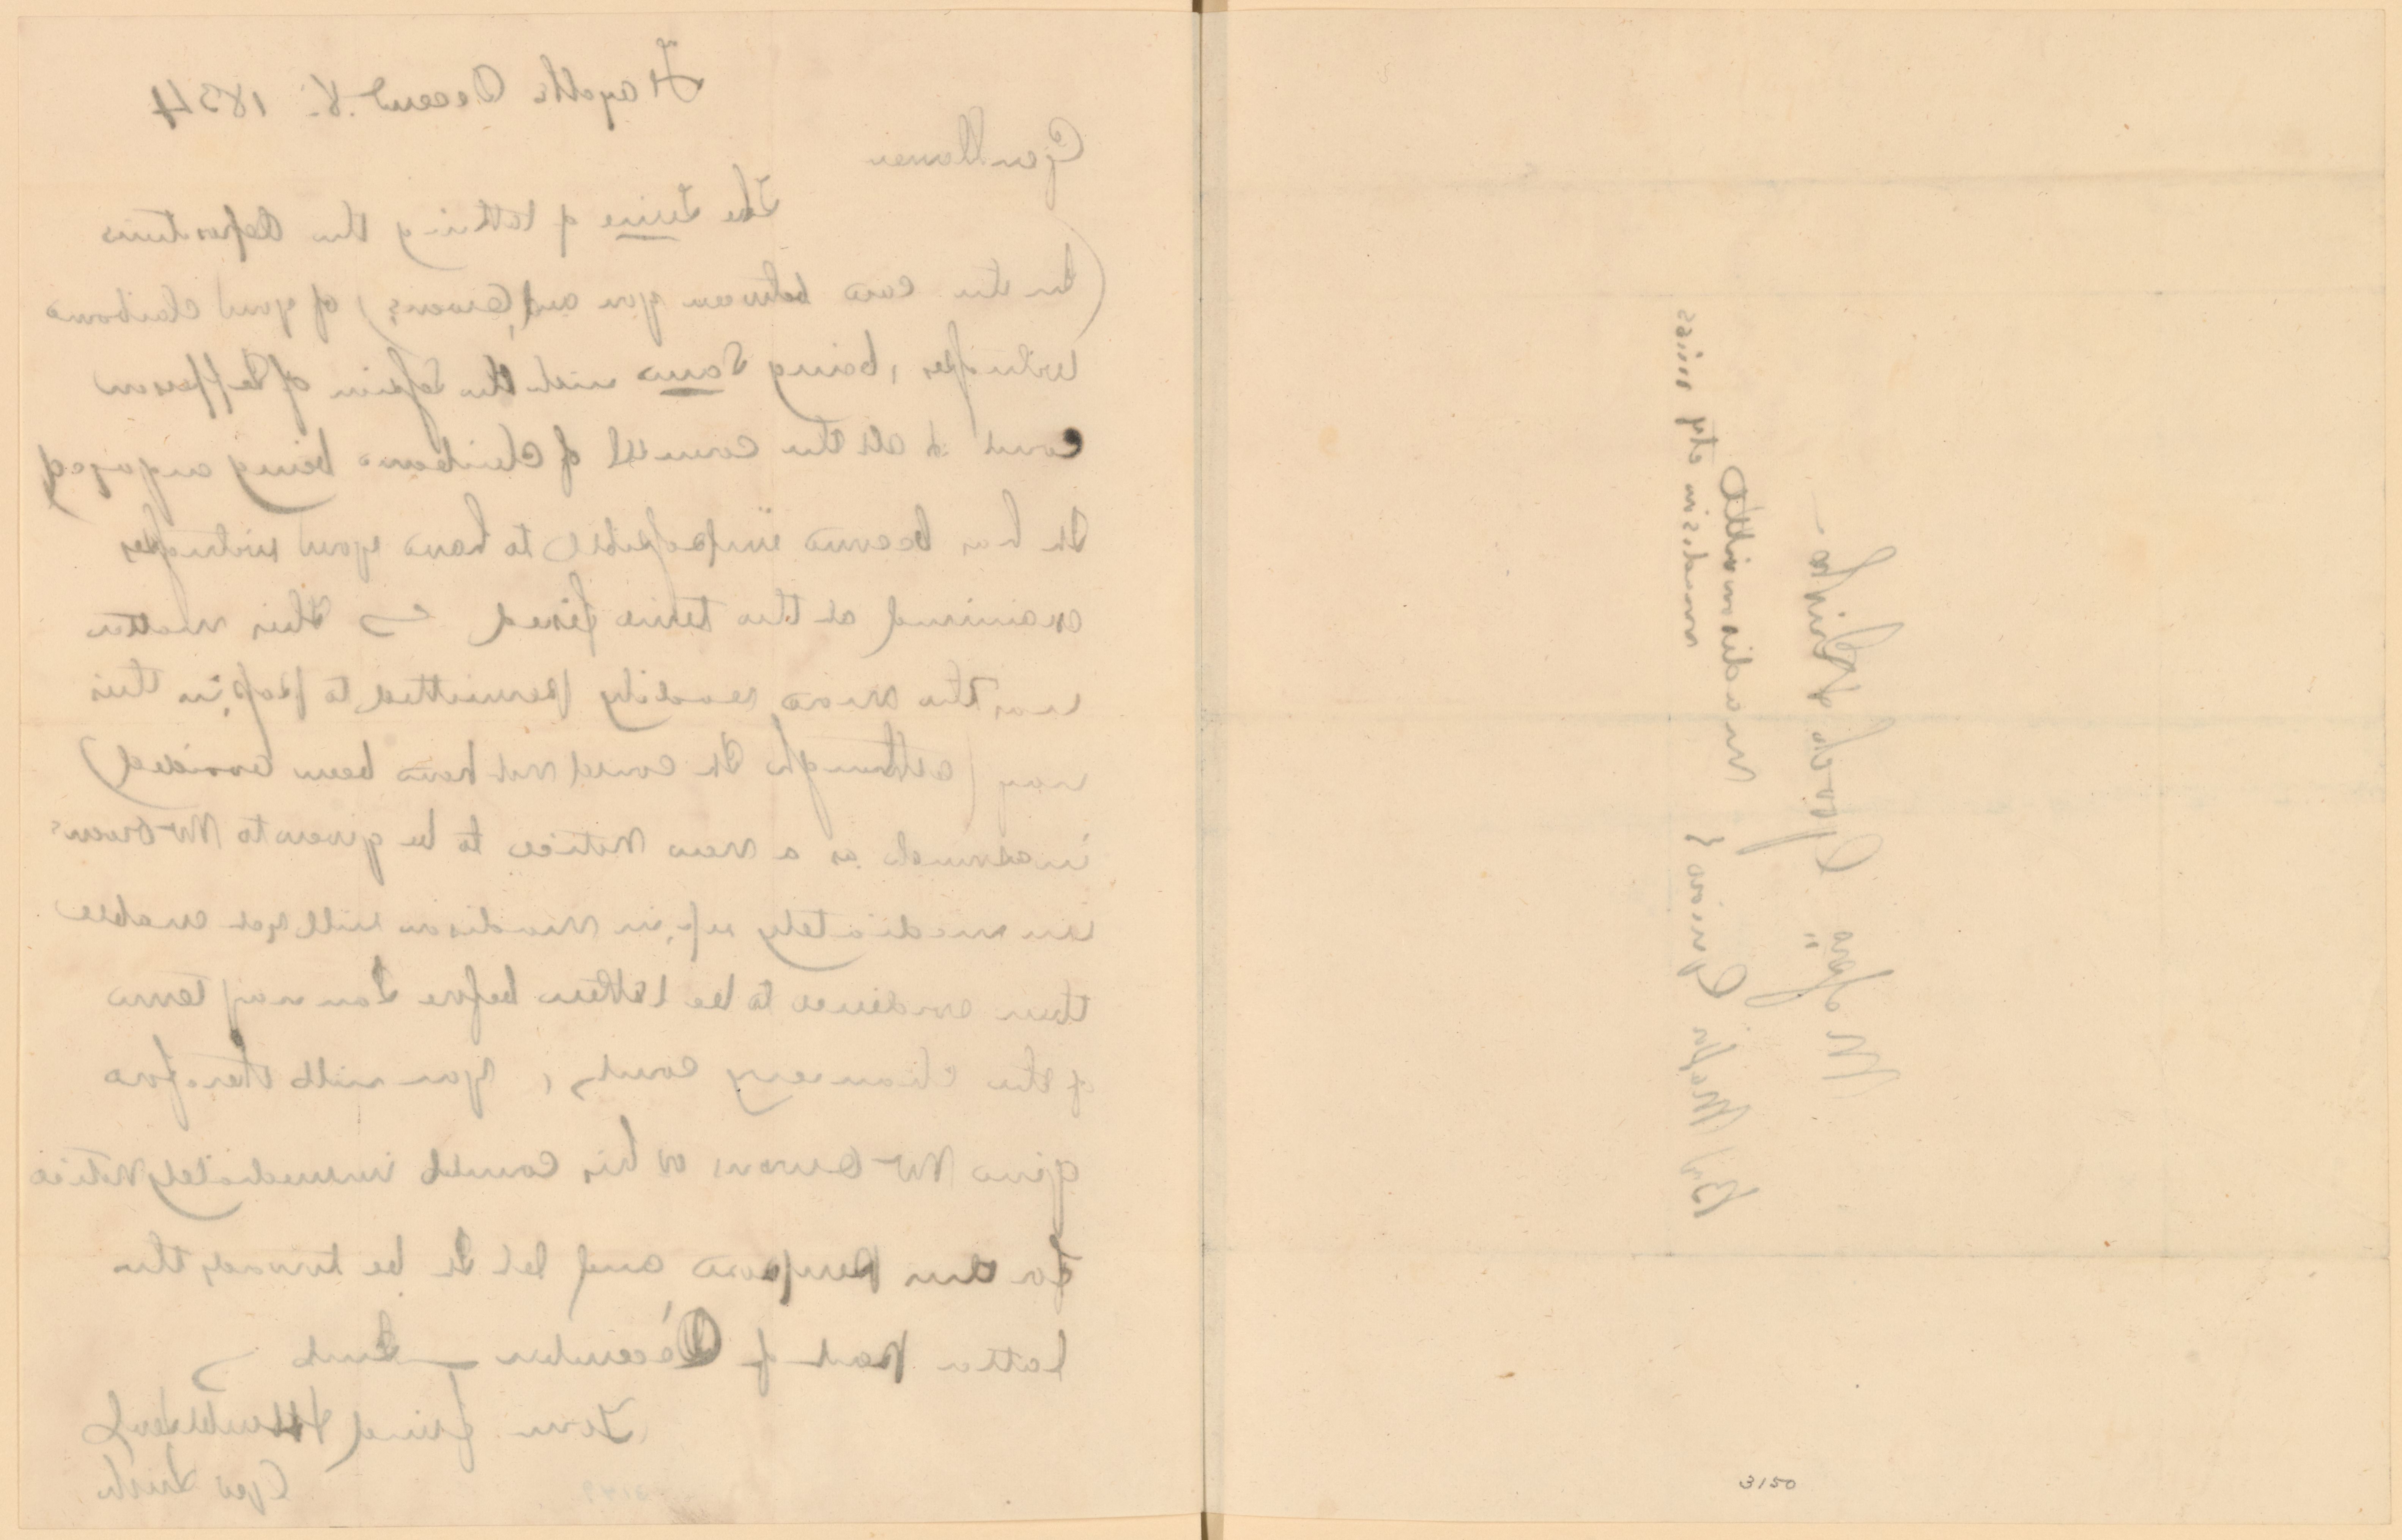 Fayette Decemr. 8. 1834
Gentlemen
The time of taking the depositions
(In the case between you and Owens) of your Claiborne
witnesses, being same with the Session of Jefferson
court & all the counsel of Claiborne being engaged
It has become impossible to have your witnesses
examined at the time fixed & this matter
was the more readily permitted to pass in this
way (although It could not have been avoided)
inasmuch as a new notice to be given to Mr Owens
immediately up in Madison will yet enable
their evidence to be taken before January term
of the Chancery court, you will therefore
give Mr Owens or his counsel immediately notice
for the purpose and let it be towards the
latter part of December
Your friend
Madisonville
Madison cty miss
3150